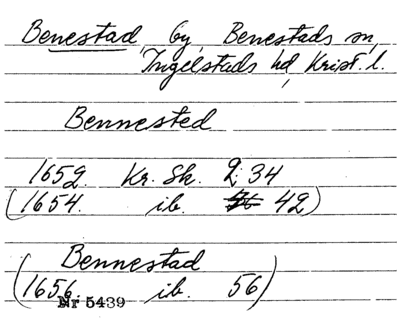 Benestad by, Benestads sn,
Ingelstads hd, Krist. l.
Bennested
1652. Kr. Sk. 2:34
(1654. ib. 42)
Bennestad
(1656. ib. 56)
Nr 5439